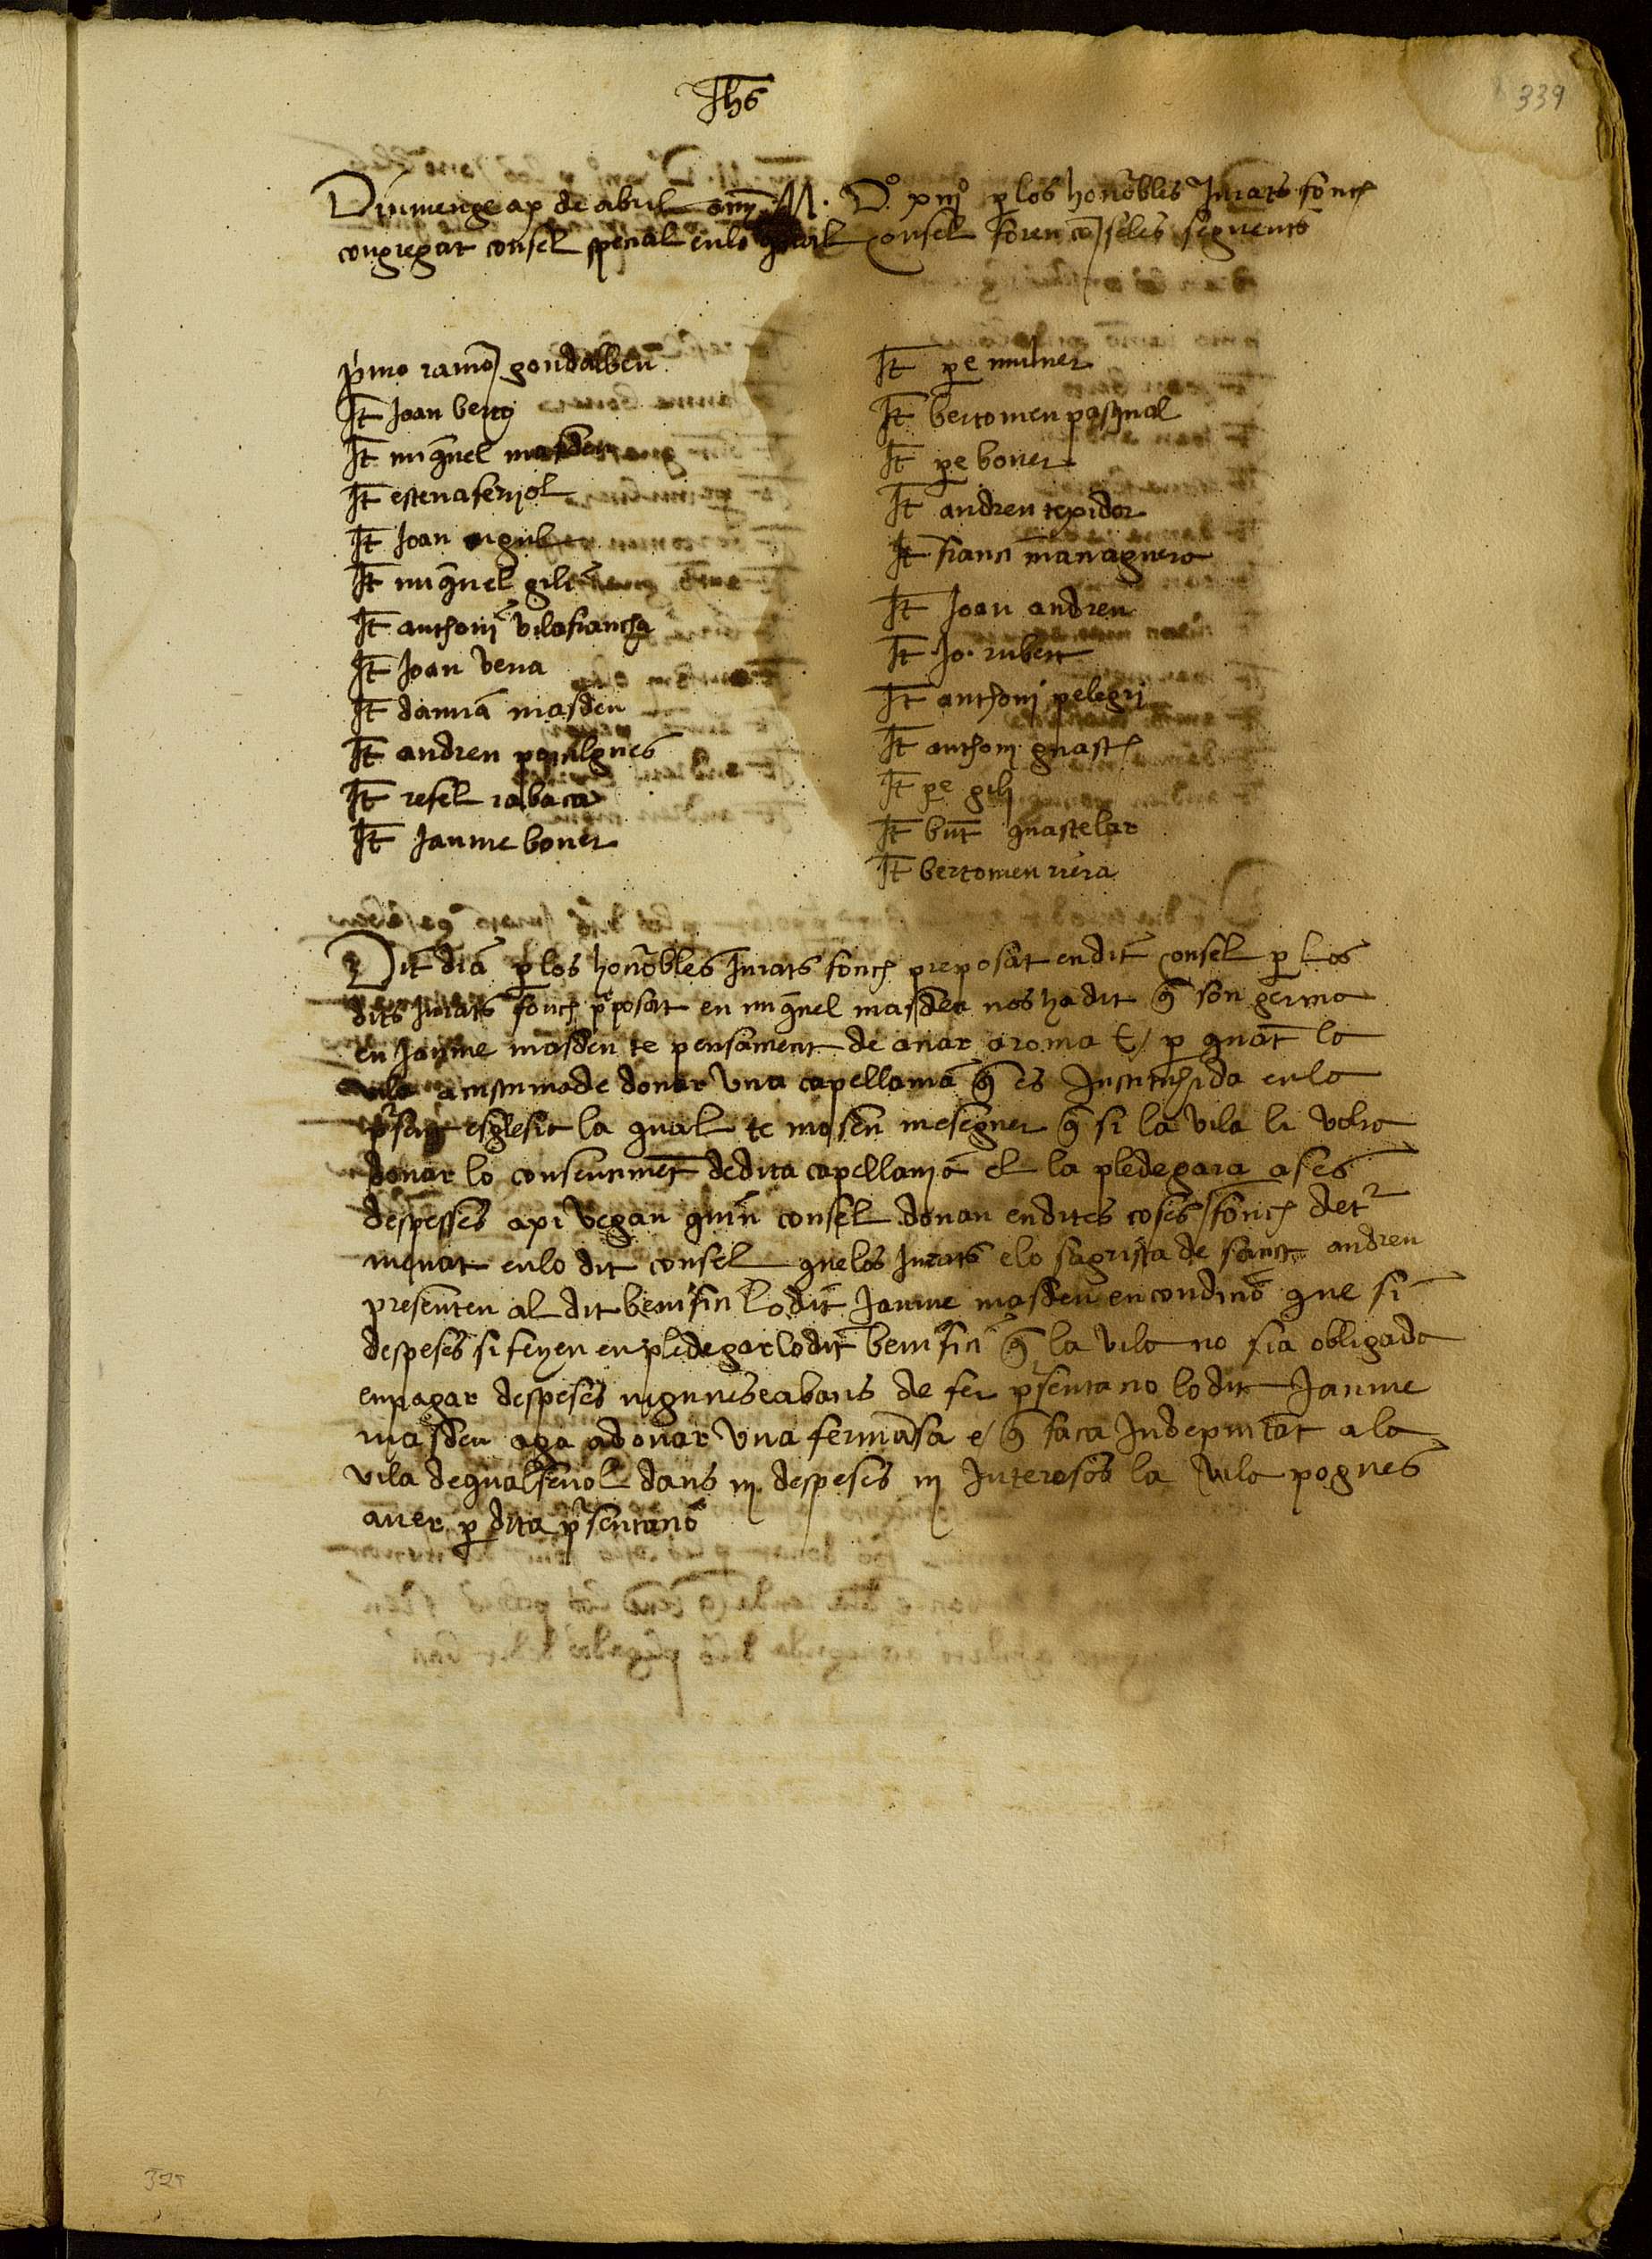 Jhs
339
Diumenge a x de abril any M. Dº xiijº p los honorables Jurats fonch
congregat consel special en lo qual consel foren co seles seguents
pimo ramo gondalbeu
It Joan berto
It miquel masdeu
It esteva feriol
It Joan
It miquel gili
It anthoni vilafrancha
It Joan vera
It damia masdeu
It andreu puigalgues
It refel rabaca
It Jaume boner
It pe mulner
It bertomeu pasqual
It pe boner
It andreu texidor
It franci managuera
It Joan andreu
It Jo. rubert
It anthoni pelegri
It anthoni guasch
It pe gili
It bnt guastelar
It bertomeu riera
Dit dia p los honorables Jurats fonch preposat en dit consel p los
dits Jurats fonch pposat en miquel masdeu nos ha dit q son germa
en Jaume masdeu te pensament de anar a roma E p quat la
vila acustuma de donar una capellania q es Instituhida en la
psent esglesia la qual te mosen meseguer q si la vila li volia
donar lo consentimet de dita capellania el la pledegara a ses
despesses axi vegau quin consel donau en dites coses fonch detr
menat en lo dit consel que los Jurats e lo sagrista de sanct andreu
presenten al dit benifici lo dit Jaume masdeu en condicio que si
despeses si feyen en pledegar lo dit benifici q la vila no sia obligada
en pagar despeses nigunes e abans de fer psentacio lo dit Jaume
masdeu aga a donar una fermasa e q faca Indepnitat a la
vila de qualsevol dans ni despeses ni Interesos la vila pogues
aver p dita psentacio
325